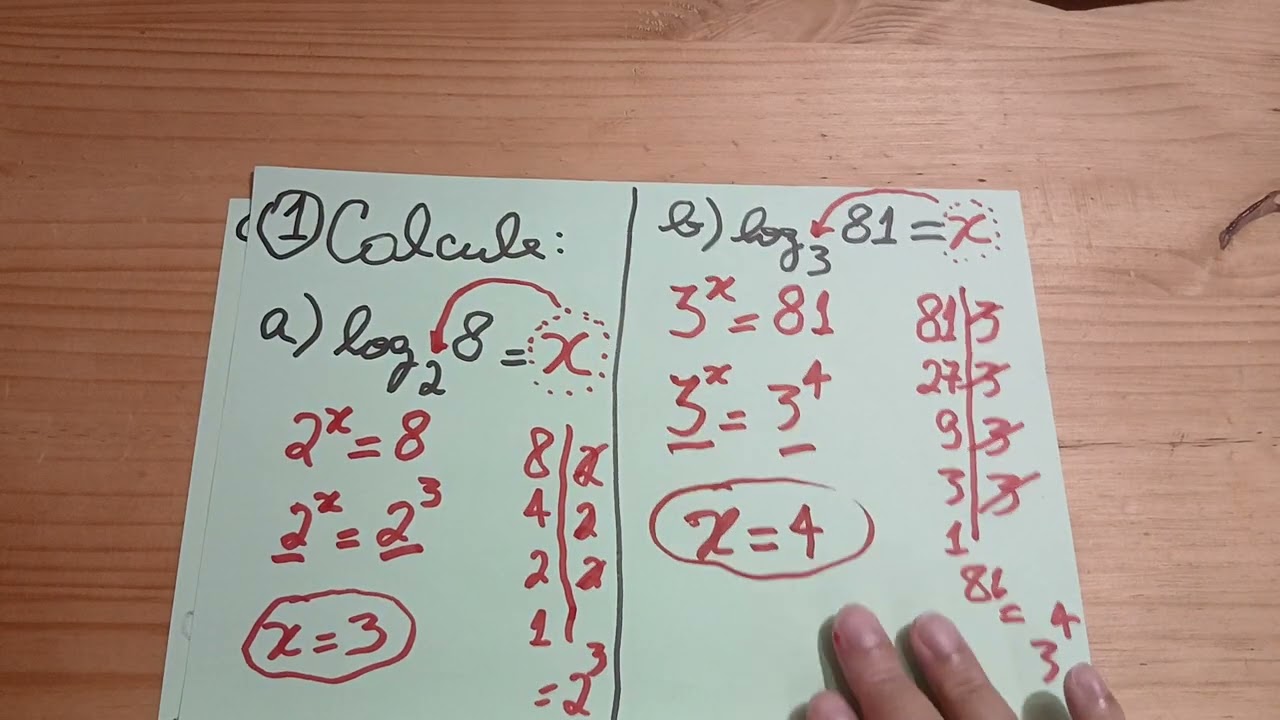 ① Calcule:
a) log₂ 8 = x
2ˣ = 8
2ˣ = 2³
x = 3
8 | 2
4 | 2
2 | 2
1 |
= 2³
b) log₃ 81 = x
3ˣ = 81
3ˣ = 3⁴
x = 4
81 | 3
27 | 3
9 | 3
3 | 3
1
81
= 3⁴